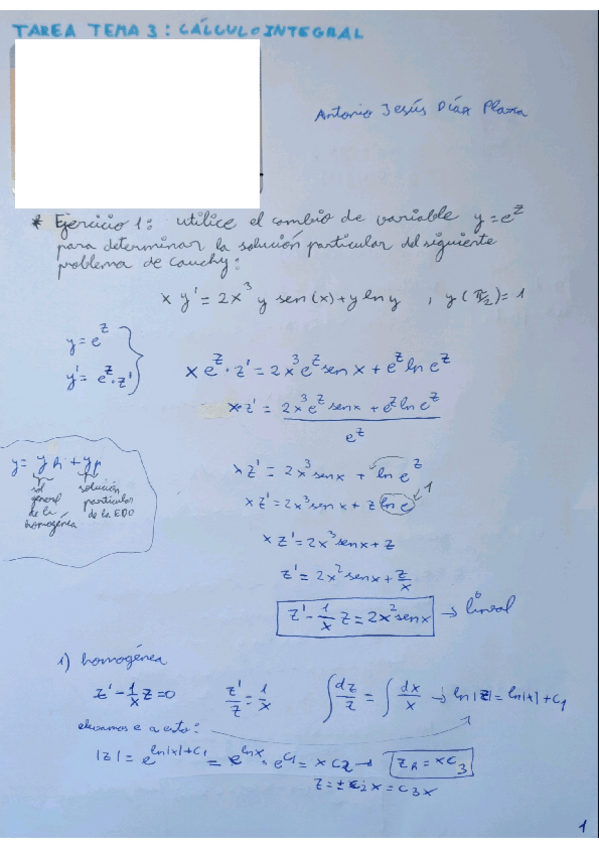 TAREA TEMA 3: CÁLCULO INTEGRAL
Antonio Jesús Díaz Plaza
* Ejercicio 1: utilice el cambio de variable y=e^z
para determinar la solución particular del siguiente
problema de Cauchy:
x y' = 2x^3 y sen(x) + y ln y , y(π/2) = 1
y = e^z
y' = e^z · z'
x e^z · z' = 2x^3 e^z sen x + e^z ln e^z
x z' = (2x^3 e^z sen x + e^z ln e^z) / e^z
x z' = 2x^3 sen x + ln e^z
x z' = 2x^3 sen x + z ln e → 1
x z' = 2x^3 sen x + z
z' = 2x^2 sen x + z/x
z' - 1/x z = 2x^2 sen x → lineal
y = y_h + y_p
sol general de la homogénea
solución particular de la EDO
1) homogénea
z' - 1/x z = 0 z'/z = 1/x ∫ dz/z = ∫ dx/x → ln|z| = ln|x| + C_1
elevamos e a esto:
|z| = e^(ln|x|+C_1) = e^(ln x) · e^(C_1) = x C_2 → z_h = x C_3
z = ± C_2 x = C_3 x
1